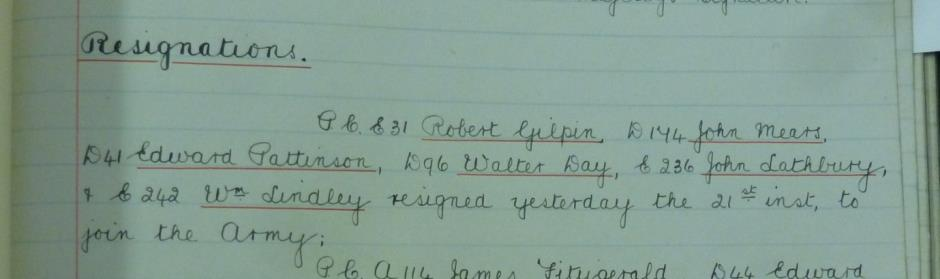 Resignations.
P.C. E31 Robert Gilpin, D174 John Mears,
D41 Edward Pattinson, D96 Walter Day, E 236 John Lathbury,
& E 242 Wm Lindley resigned yesterday the 21st inst, to
join the Army;
P.C. A114 James Fitzgerald D44 Edward